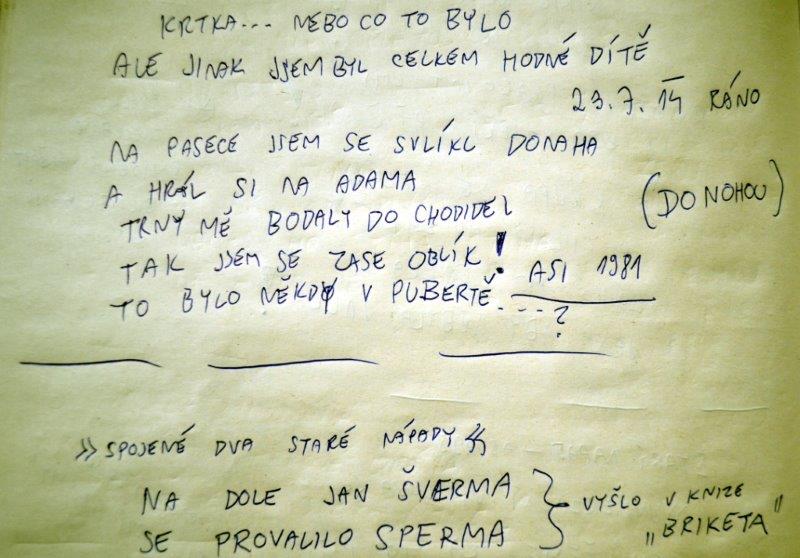 KRTKA... NEBO CO TO BYLO
ALE JINAK JSEM BYL CELKEM HODNÉ DÍTĚ
23.7.14 RÁNO
NA PASECE JSEM SE SVLÍKL DONAHA
A HRÁL SI NA ADAMA
TRNY MĚ BODALY DO CHODIDEL (DO NOHOU)
TAK JSEM SE ZASE OBLÍK!
TO BYLO NĚKDY V PUBERTĚ....? ASI 1981
»SPOJENÉ DVA STARÉ NÁPADY«
NA DOLE JAN ŠVERMA
SE PROVALILO SPERMA } VYŠLO V KNIZE
„BRIKETA"